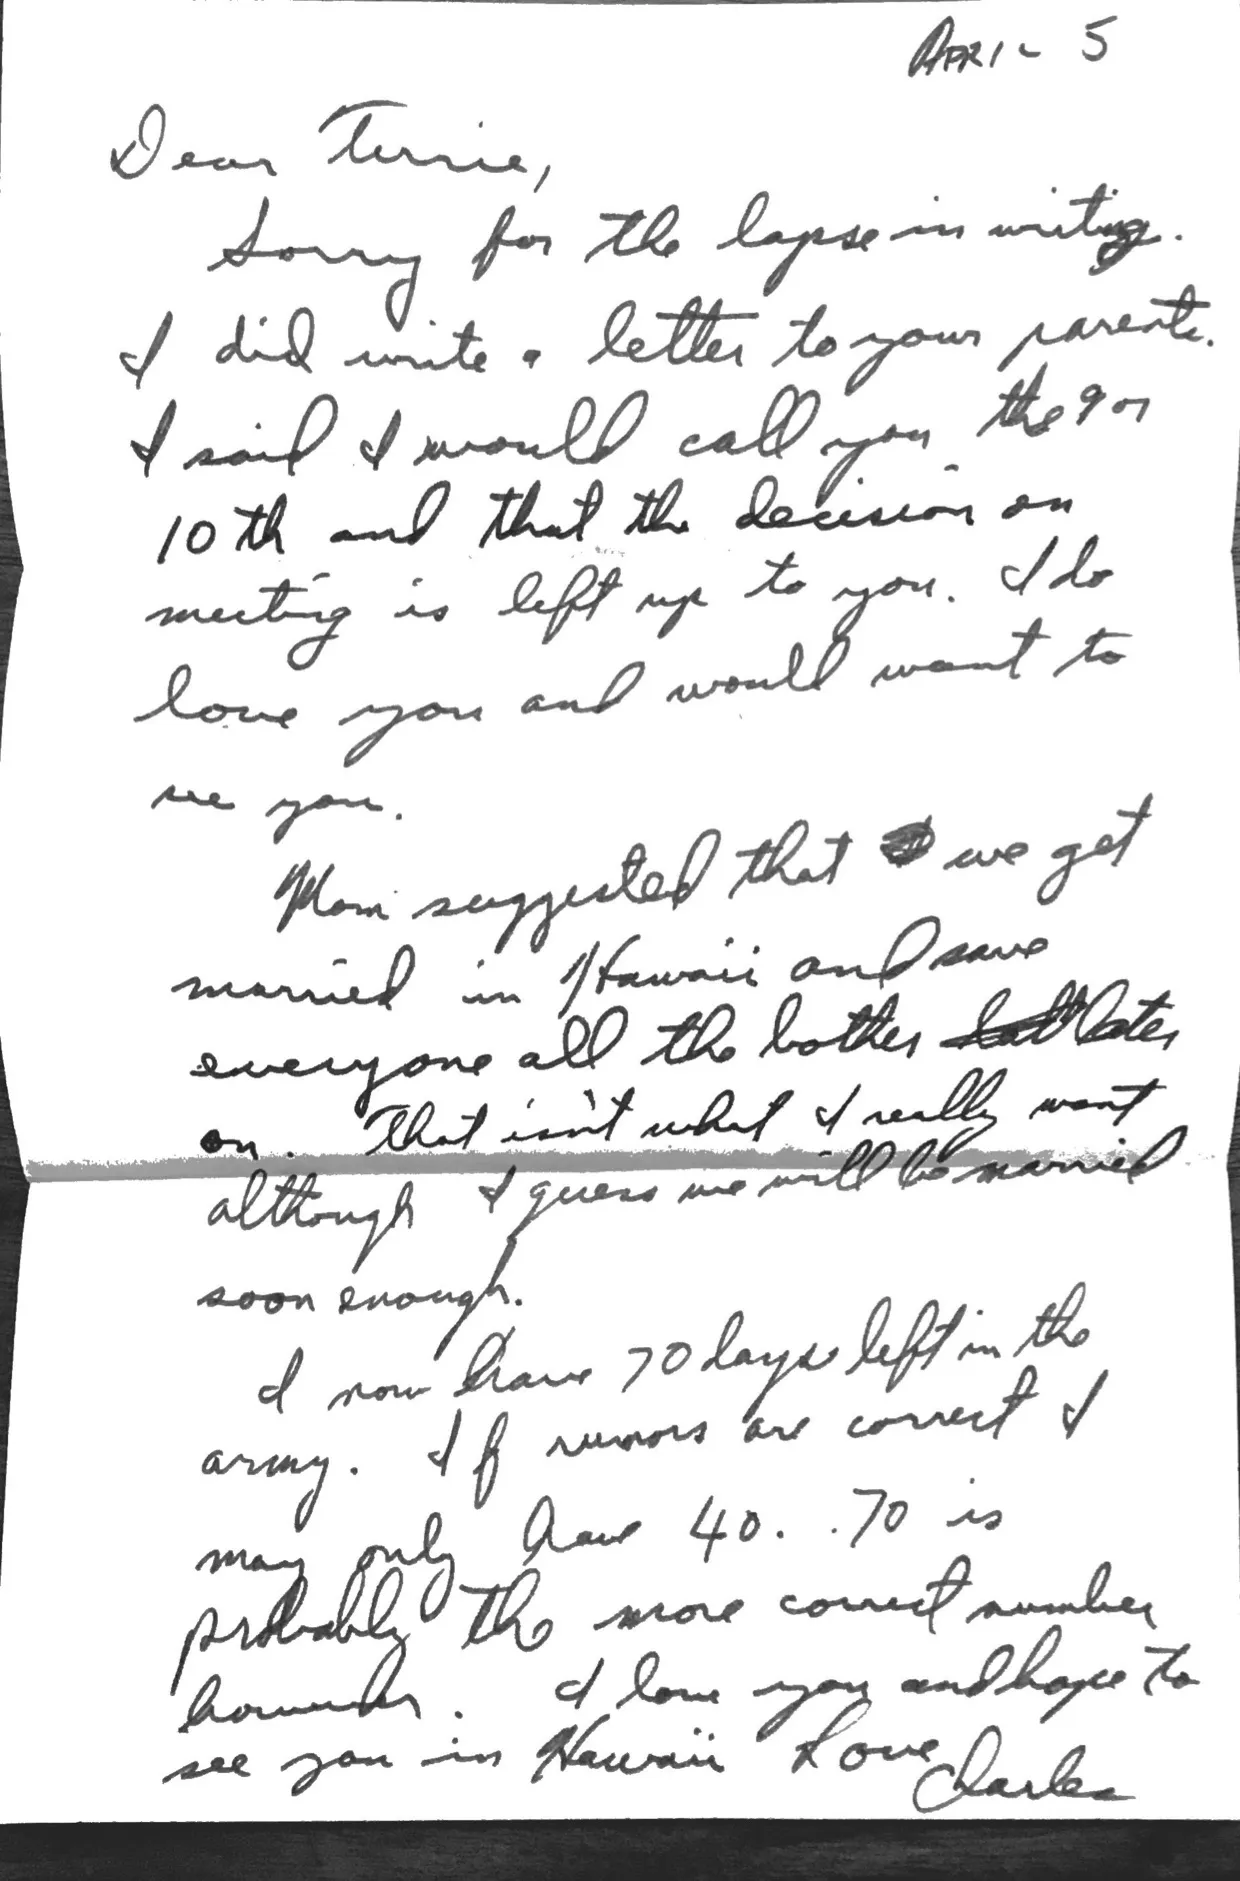 APRIL 5
Dear Terrie,
Sorry for the lapse in writing.
I did write a letter to your parents.
I said I would call you the 9 or
10th and that the decision on
meeting is left up to you. I do
love you and would want to
see you.
Mom suggested that we get
married in Hawaii and save
everyone all the bother later
on. That isn't what I really want
although I guess we will be married
soon enough.
I now have 70 days left in the
army. If rumors are correct I
may only have 40. . 70 is
probably the more correct number
however. I love you and hope to
see you in Hawaii Love
Charles